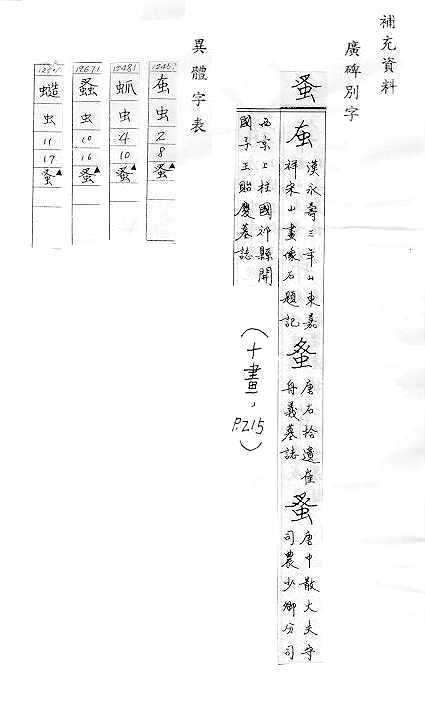 補充資料
廣碑別字
蚤
漢永壽三年山東嘉
祥宋山畫像石題記
唐右拾遺崔
舟義墓誌
蚤
唐中散大夫守
司農少卿分司
西京上柱國祁縣開
國子王貽慶墓誌
(十畫,P.215)
異體字表
虫
2
8
蚤▲
12481
𧉪
虫
4
10
蚤▲
12671
虫
10
16
蚤▲
虫
11
17
蚤▲